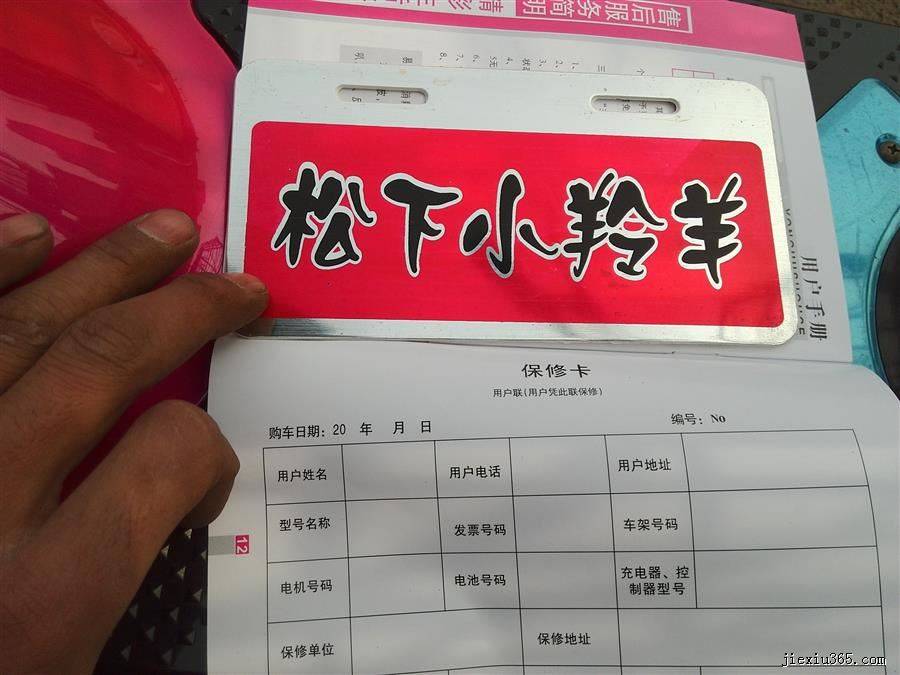 售后服务简明
松下小羚羊
用户手册
YONGHUSHOUCE
保修卡
用户联(用户凭此联保修)
购车日期: 20 年 月 日 编号: No
用户姓名 用户电话 用户地址
型号名称 发票号码 车架号码
电机号码 电池号码 充电器、控
制器型号
保修单位 保修地址
12
jiexiu365.com